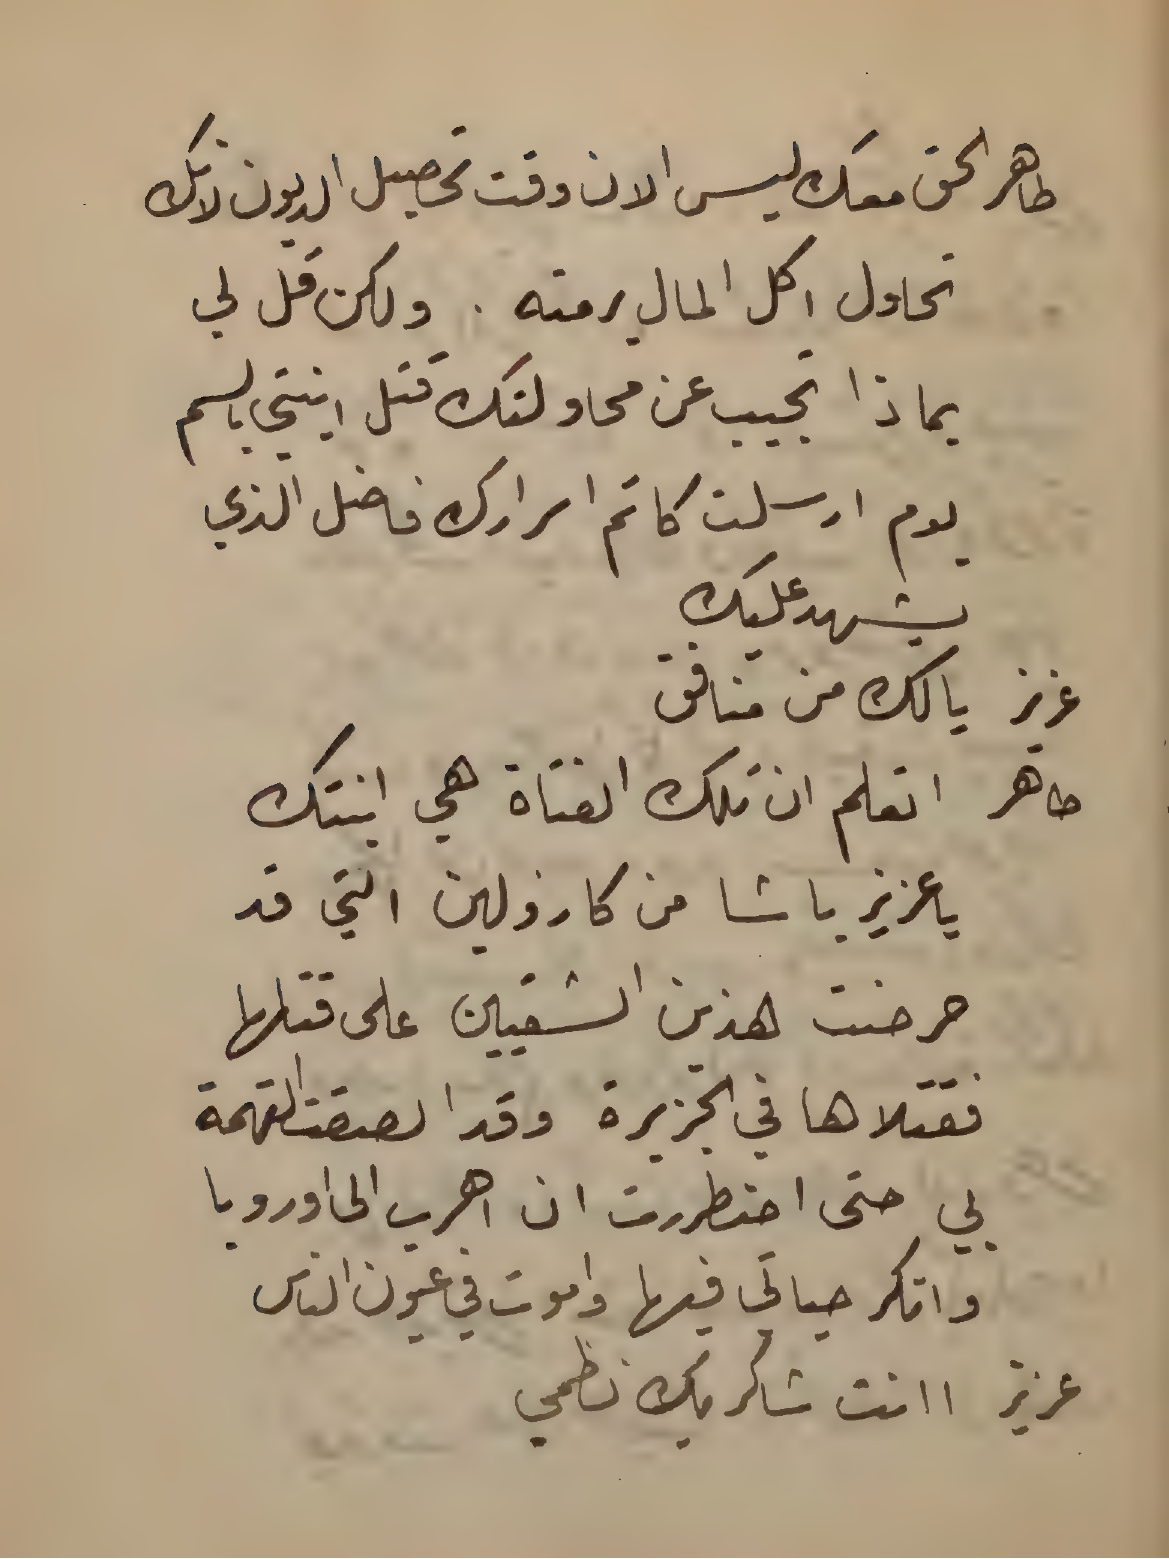 طاهر الحق معك ليس الان وقت تحصيل الديون لانك
تحاول اكل المال برمته . ولكن قل لي
بماذا تجيب عن محاولتك قتل ابنتي بالسم
يوم ارسلت كاتم اسرارك فاضل الذي
يشهد عليك
عزيز يالك من منافق
طاهر اتعلم ان تلك الفتاة هي ابنتك
يا عزيز باشا من كارولين التي قد
حرضت هذين الشقيين على قتلها
فقتلاها في الجزيرة وقد الصقت التهمة
بي حتى اضطررت ان اهرب الى اوروبا
واتكر حياتي فيها واموت في عيون الناس
عزيز اانت شاكر بك نظمي